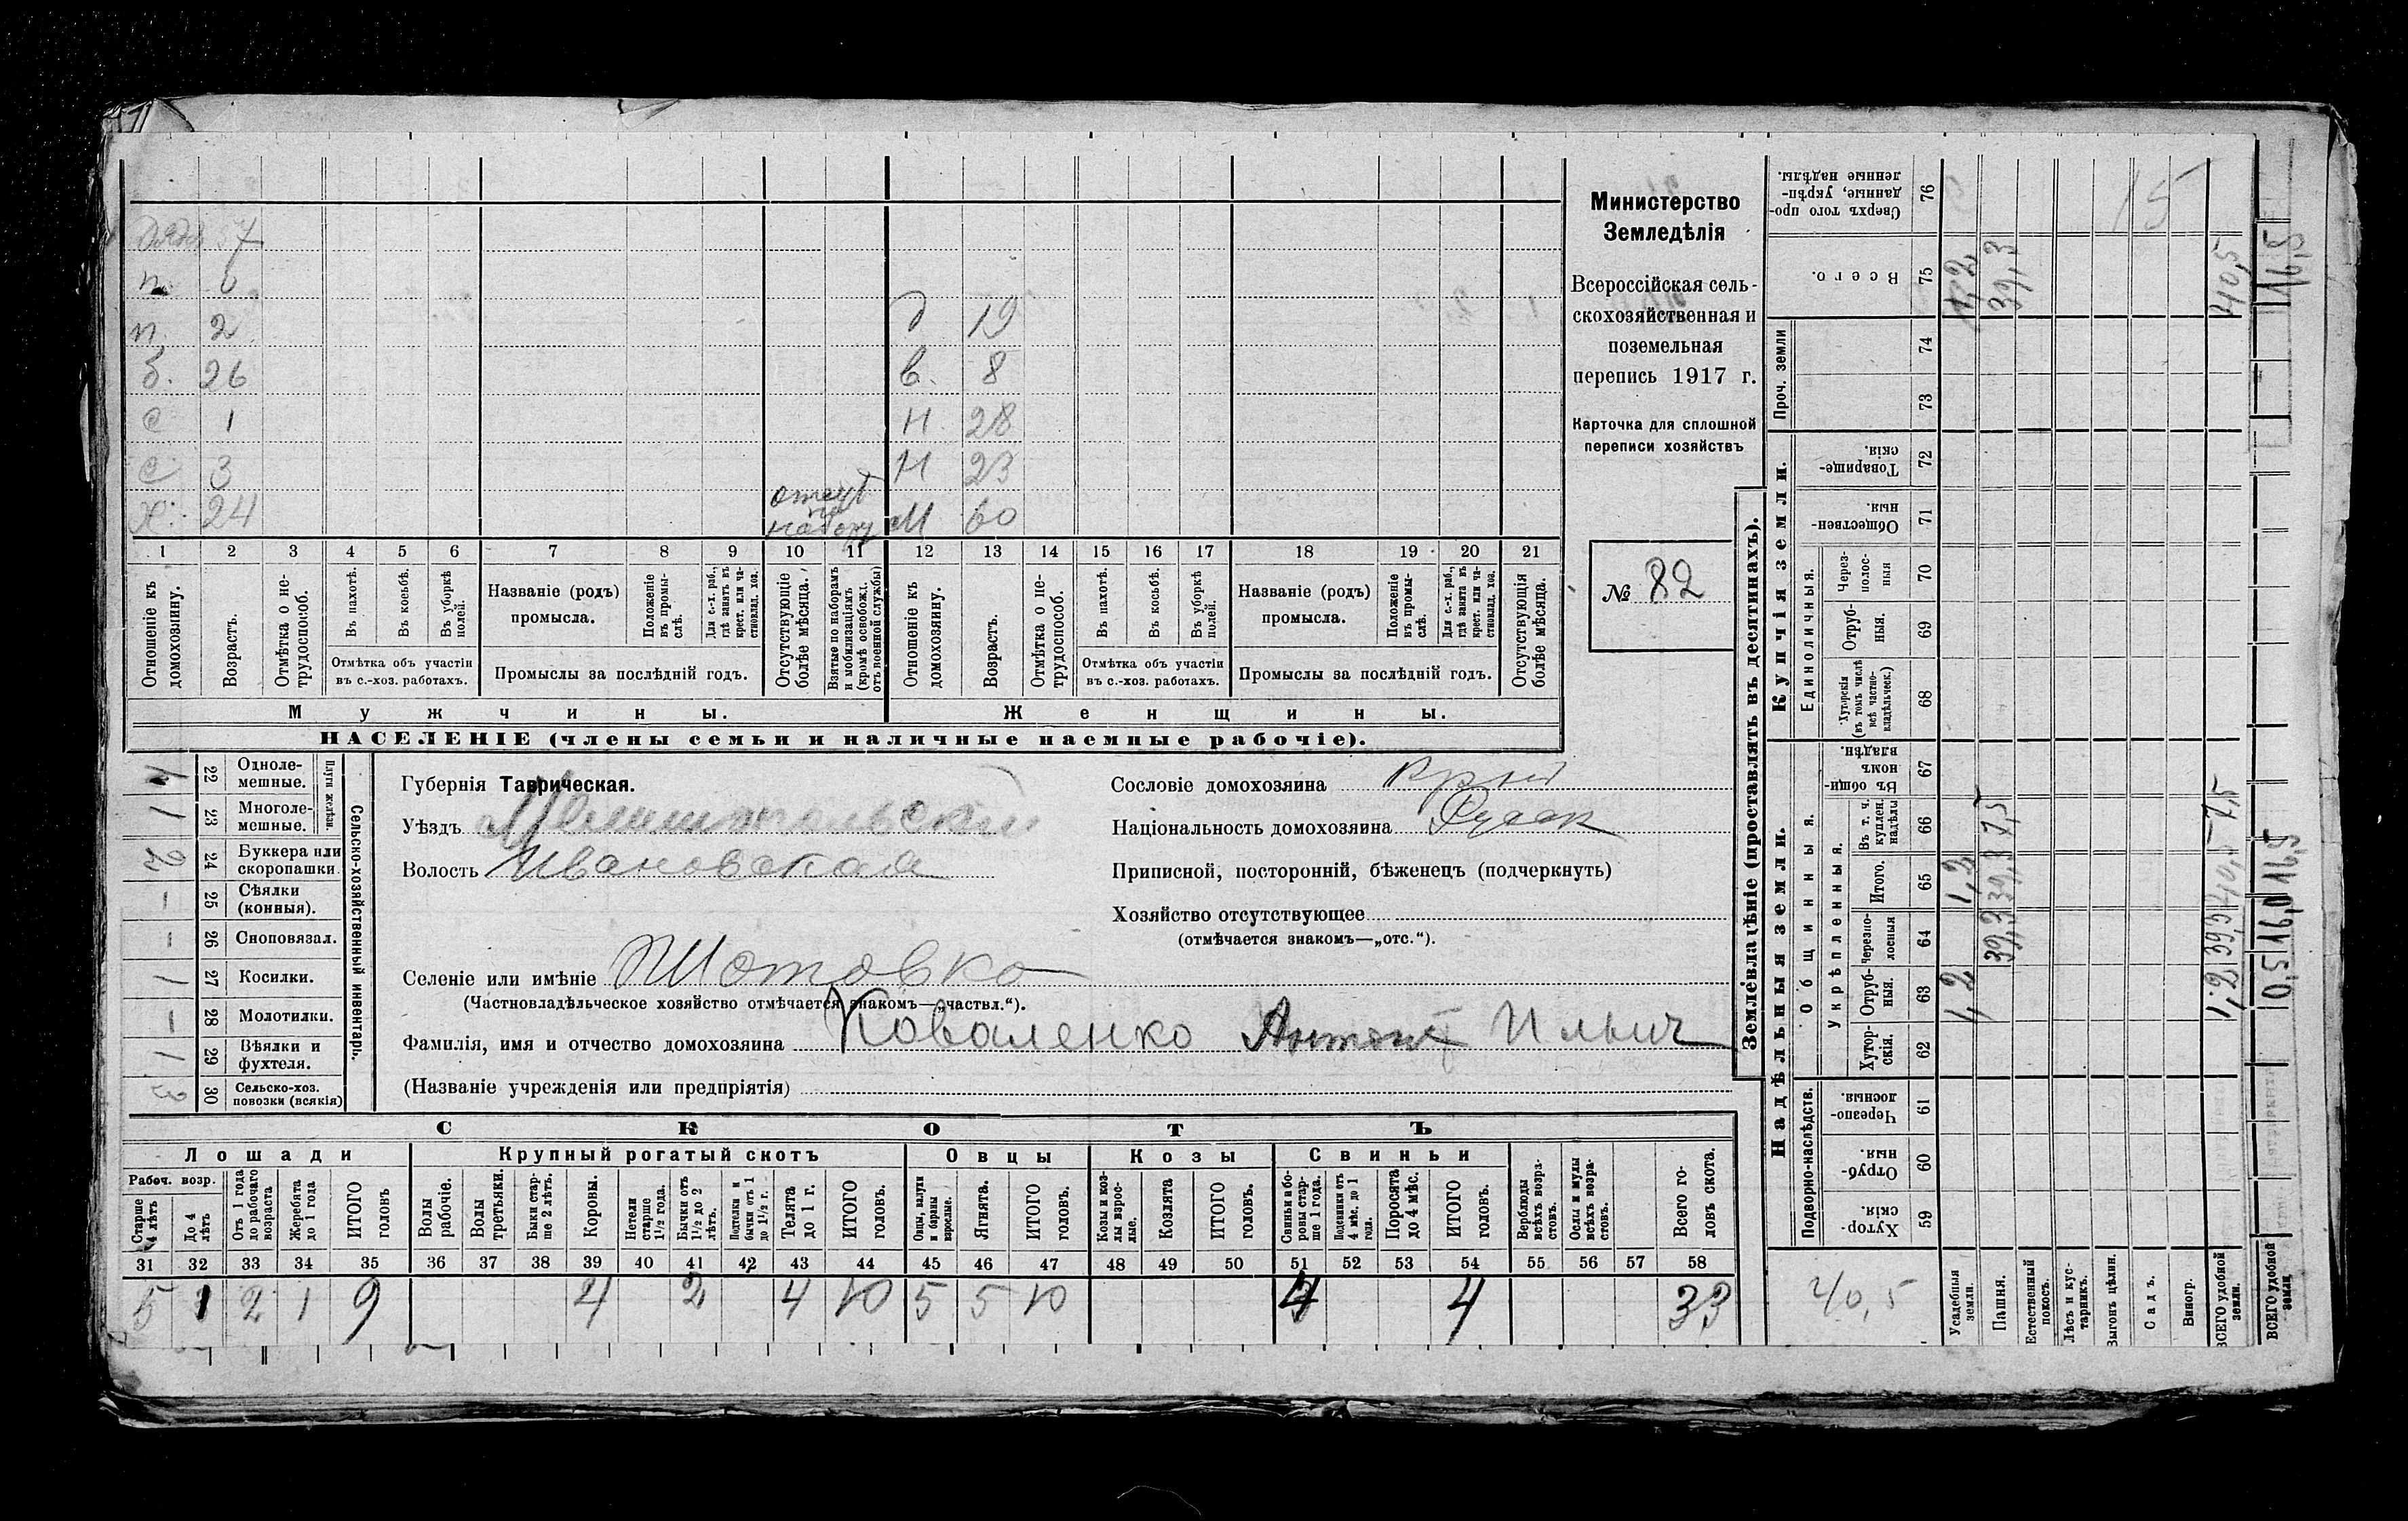 дядя 57
п. 6
п. 2 д 19
б. 26 в. 8
с 1 н 28
с 3 н 23
х. 24 отсут по набору м 60
1 2 3 4 5 6 7 8 9 10 11 12 13 14 15 16 17 18 19 20 21
Отношеніе къ домохозяину.
Возрастъ.
Отмѣтка о нетрудоспособ.
Въ пахотѣ.
Въ косьбѣ.
Въ уборкѣ полей.
Отмѣтка объ участіи
въ с.-хоз. работахъ.
Названіе (родъ)
промысла.
Положеніе въ промыслѣ.
Для с.-х. раб., гдѣ занятъ въ крест. или частновлад. хоз.
Промыслы за послѣдній годъ.
Отсутствующіе болѣе мѣсяца.
Взятые по наборамъ и мобилизаціямъ (кромѣ освобожд. отъ военной службы)
Отношеніе къ домохозяину.
Возрастъ.
Отмѣтка о нетрудоспособ.
Въ пахотѣ.
Въ косьбѣ.
Въ уборкѣ полей.
Отмѣтка объ участіи
въ с.-хоз. работахъ.
Названіе (родъ)
промысла.
Положеніе въ промыслѣ.
Для с.-х. раб., гдѣ занята въ крест. или частновлад. хоз.
Промыслы за послѣдній годъ.
Отсутствующія болѣе мѣсяца.
Мужчины. Женщины.
НАСЕЛЕНІЕ (члены семьи и наличные наемные рабочіе).
Министерство
Земледѣлія
Всероссійская сель-
скохозяйственная и
поземельная
перепись 1917 г.
Карточка для сплошной
переписи хозяйствъ
№ 82
Сельско-хозяйственный инвентарь.
Плуги желѣзн.
1 22 Одноле-
мешные.
1 23 Многоле-
мешные.
2 24 Буккера или
скоропашки.
— 25 Сѣялки
(конныя).
— 26 Сноповязал.
1 27 Косилки.
— 28 Молотилки.
1 29 Вѣялки и
фухтеля.
3 30 Сельско-хоз.
повозки (всякія)
Губернія Таврическая.
Уѣздъ Мелитопольскій
Волость Ивановская
Селеніе или имѣніе Шотовка
(Частновладѣльческое хозяйство отмѣчается знакомъ—„частвл.“).
Фамилія, имя и отчество домохозяина Коваленко Антонъ Ильич
(Названіе учрежденія или предпріятія)
Сословіе домохозяина
Національность домохозяина Русск
Приписной, посторонній, бѣженецъ (подчеркнуть)
Хозяйство отсутствующее
(отмѣчается знакомъ—„отс.“).
СКОТЪ
Лошади Крупный рогатый скотъ Овцы Козы Свиньи
Рабоч. возр.
Старше 4 лѣтъ
До 4 лѣтъ
Отъ 1 года до рабочаго возраста
Жеребята до 1 года
ИТОГО головъ
Волы рабочіе.
Волы третьяки.
Быки старше 2 лѣтъ.
Коровы.
Нетели старше 1½ года.
Бычки отъ 1½ до 2 лѣтъ.
Подтелки и бычки отъ 1 до 1½ г.
Телята до 1 г.
ИТОГО головъ.
Овцы, валухи и бараны взрослые.
Ягнята.
ИТОГО головъ.
Козы и козлы взрослые.
Козлята
ИТОГО головъ.
Свиньи и боровы старше 1 года.
Подсвинки отъ 4 мѣс. до 1 года.
Поросята до 4 мѣс.
ИТОГО головъ.
Верблюды всѣхъ возрастовъ.
Ослы и мулы всѣхъ возрастовъ.
Всего головъ скота.
31 32 33 34 35 36 37 38 39 40 41 42 43 44 45 46 47 48 49 50 51 52 53 54 55 56 57 58
5 1 2 1 9 4 2 4 10 5 5 10 4 4 33
Землевладѣніе (проставлять въ десятинахъ).
Надѣльныя земли. Купчія земли. Проч. земли
Подворно-наслѣдств.
Общинныя.
Укрѣпленныя.
Единоличныя.
Хуторскія. 59
Отрубныя. 60
Черезполосныя. 61
Хуторскія. 62
Отрубныя. 63
Черезполосныя 64
Итого. 65
Въ т. ч. куплен. надѣлы 66
Въ общинномъ владѣн. 67
Хуторскія (въ томъ числѣ всѣ частновладѣльческ.) 68
Отрубныя. 69
Черезполосныя 70
Общественныя 71
Товарищескія. 72
73
74
Всего. 75
Сверхъ того проданные, укрѣпленные надѣлы. 76
40,5
Усадебныя земли. 1,2 1,2 1,2
Пашня. 39,3 39,3 7,5 39,3
Естественный покосъ.
Лѣсъ и кустарникъ.
Выгонъ цѣлин.
Садъ. 15
Виногр.
ВСЕГО удобной земли. 1,2 39,3 40,5 7,5 40,5
ВСЕГО удобной земли 0,5 16,0 16,5 16,5